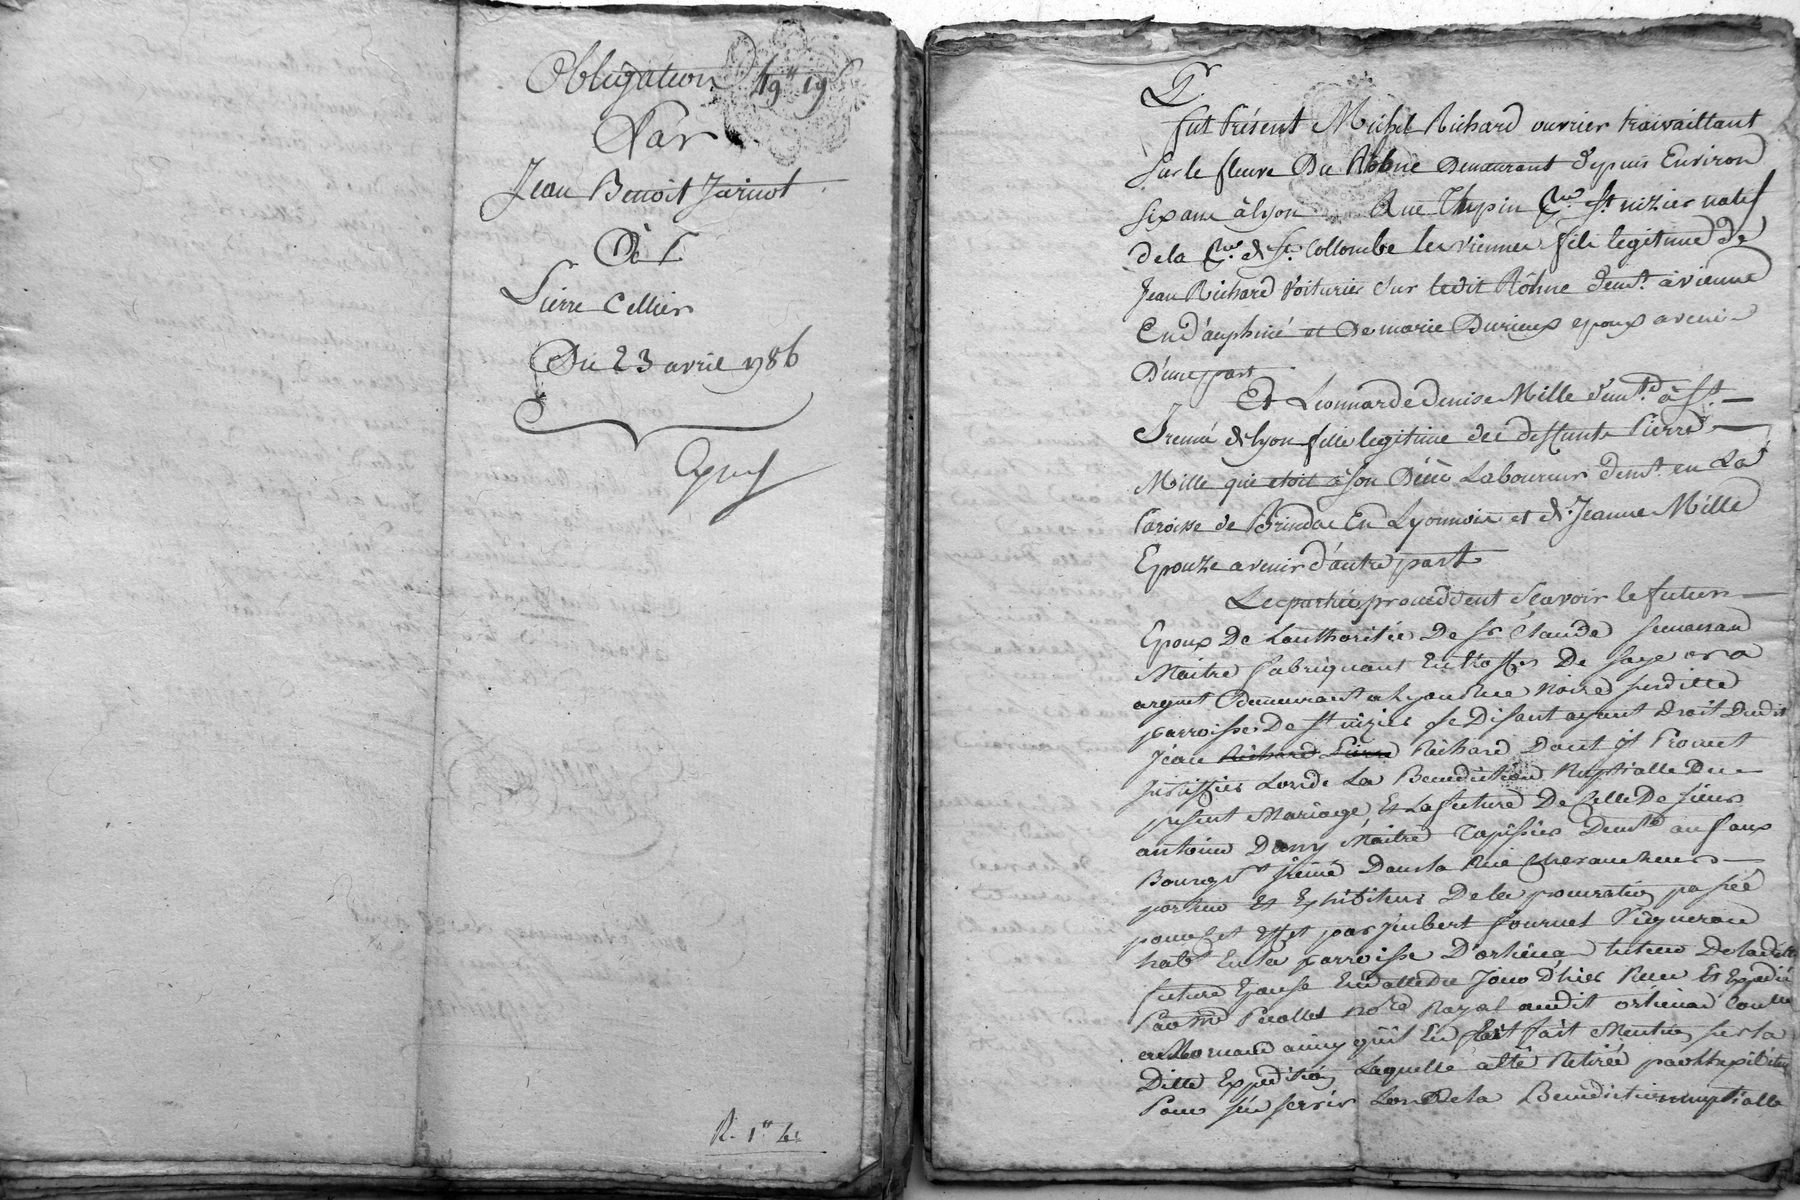 Obligation 49# 19s
Par
Jean Benoit Jurinot
De L
Pierre Cellier
Du 23 avril 1786
R. 1#
fut Présent Michel Richard ouvrier travaillant
sur le fleuve Du Rhône Demeurant depuis Environ
six ans à lyon Rue Thupin psse st nizier natif
de la psse de ste Collombe les vienne fils legitime de
Jean Richard Voiturier sur ledit Rhône demt à vienne
En dauphiné et De marie Durieux epoux avenir
D'une part
Et Leonnarde denise Mille demte à st
Irenné de lyon fille legitime des deffunts Pierre
Mille qui etoit à son Décès Laboureur demt en La
Paroisse de Brindas En Lyonnois et de Jeanne Mille
Epouze avenir d'autre part
Les parties procedent sçavoir le futur
Epoux De Lauthoritée De sr Claude
Maitre fabriquant En etoffes De soye or &
argent Demeurant a Lyon Rue Noire susditte
parroisse De st nizier se Disant ayant droit dudit
Jean Richard Pierre Richard Dont il Promet
justiffier Lors de La Benediction Nuptialle Du
present Mariage, Et La future De Celle De sieur
antoine Dany Maitre Tapissier Demt au faux
Bourg st irené Dans la Rue
porteur Et Exhibiteur De la procuration passée
pour cet Effet par jimbert fournel Vigneron
habt En la parroisse D'orliénas tuteur De laditte
future Epouse En datte du Jour D'hier Reçu Et Expedié
Par Me notre Royal audit orliénas Controllé
a Mornand ainsy quil En Est fait Mention sur la
Ditte Expedition Laquelle a été Retirée par Lhexpibiteur
Pour s'en servir Lors De la Benediction nuptialle